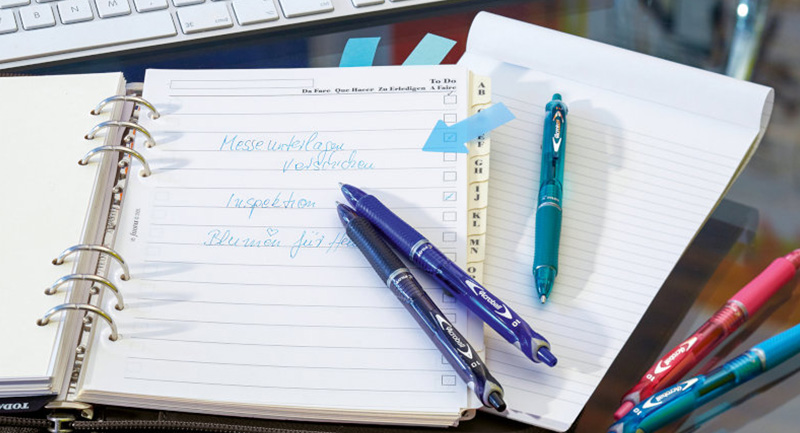 To Do
Da Fare Que Hacer Zu Erledigen A Faire
Messeunterlagen
verschicken
Inspektion
Blumen für
AB
EF
GH
IJ
KL
MN
Acroball
Acroball
Acroball
Acroball
Acroball
TODAY